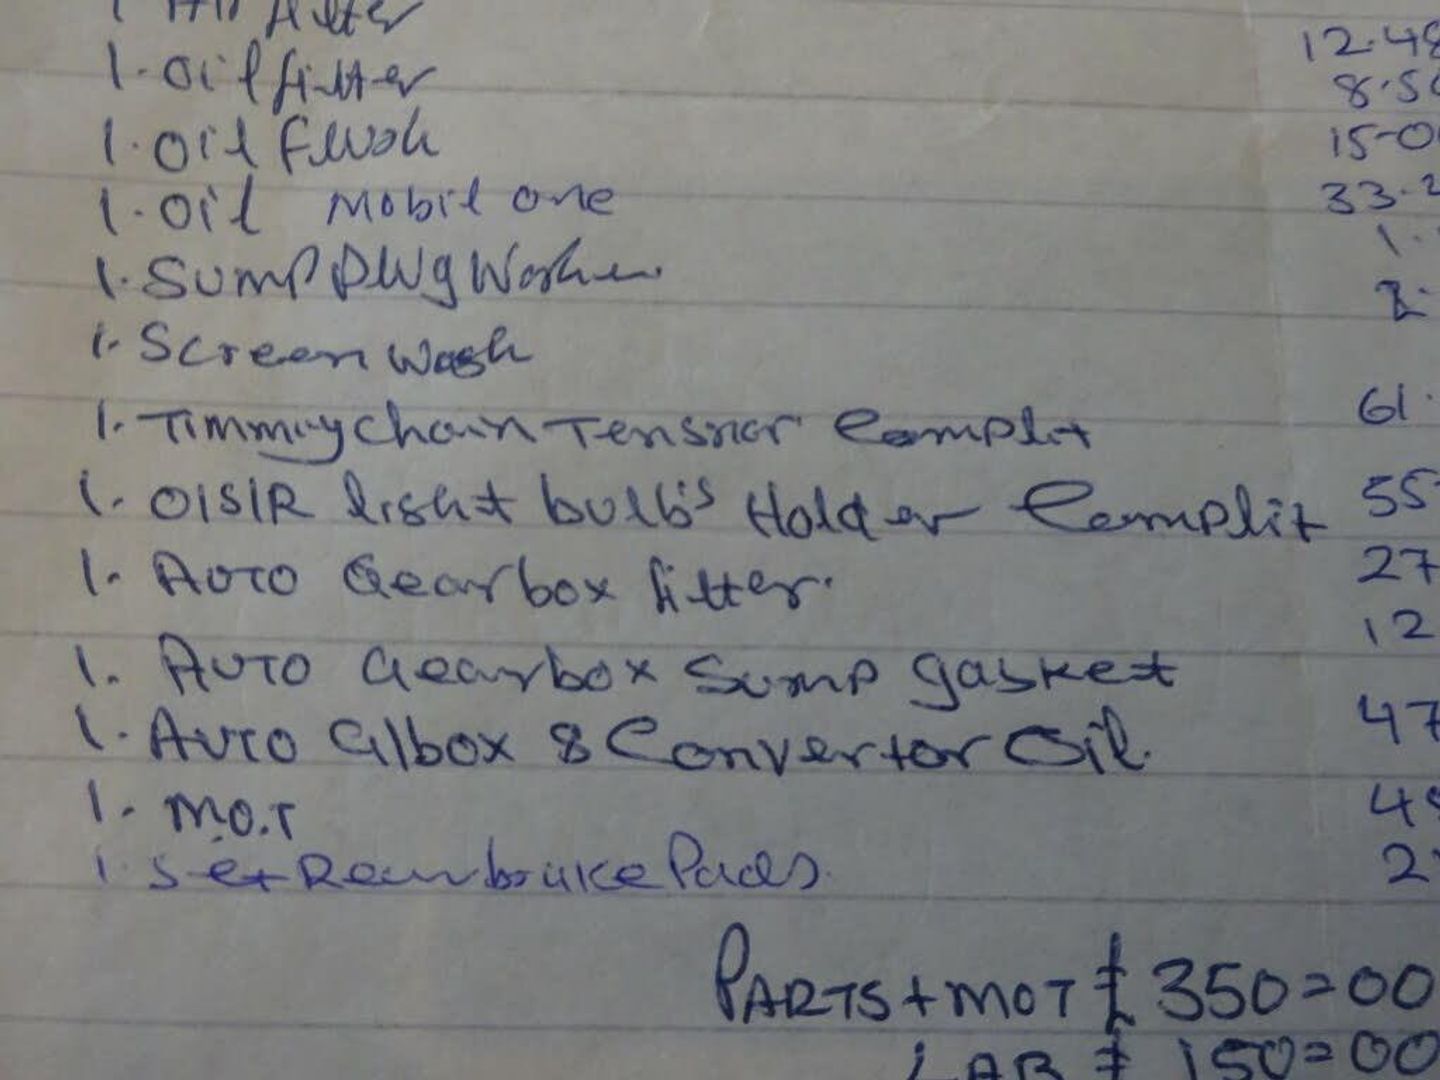 1 Air filter 12.48
1. Oil filter 8.50
1. Oil Flush 15-0
1. Oil Mobil one 33.2
1. Sump Plug Washer 1.
1. Screen Wash 2.
1. Timmingchain Tensnor Complit 61.
1. O/S/R light bulb's Holder Complit 55
1. Auto Gearbox filter. 27
1. Auto Gearbox Sump gasket 12
1. Auto G/box & Convertor Oil. 47
1. M.O.T 48
1. Set Rear brake Pads. 2
PARTS + MOT £ 350=00
LAB £ 150=00